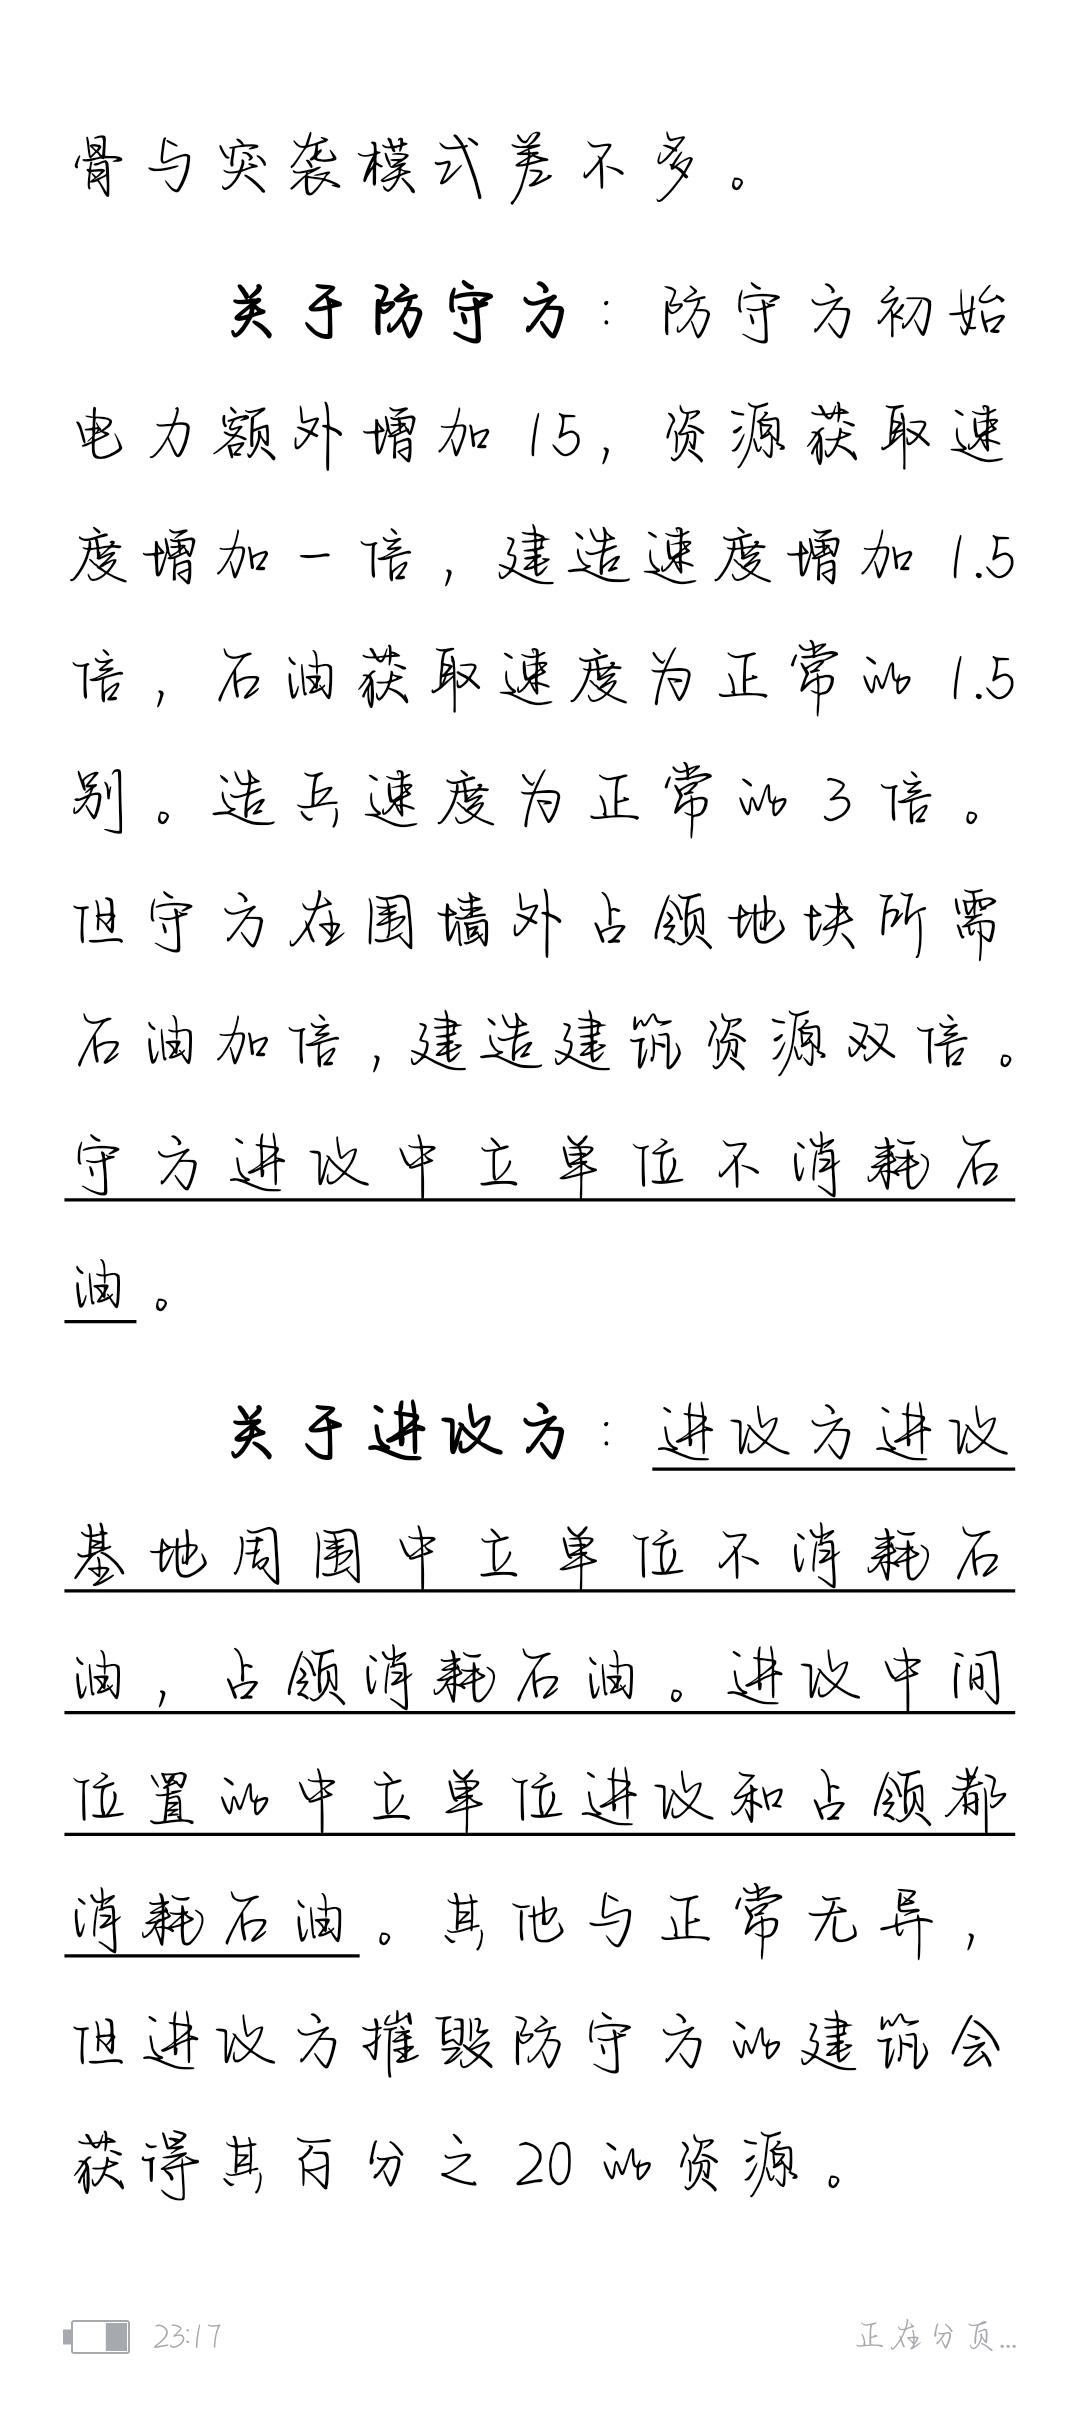 骨与突袭模式差不多。
关于防守方：防守方初始
电力额外增加15，资源获取速
度增加一倍，建造速度增加1.5
倍，石油获取速度为正常的1.5
别。造兵速度为正常的3倍。
但守方在围墙外占领地块所需
石油加倍，建造建筑资源双倍。
守方进攻中立单位不消耗石
油。
关于进攻方：进攻方进攻
基地周围中立单位不消耗石
油，占领消耗石油。进攻中间
位置的中立单位进攻和占领都
消耗石油。其他与正常无异，
但进攻方摧毁防守方的建筑会
获得其百分之20的资源。
23:17
正在分页...